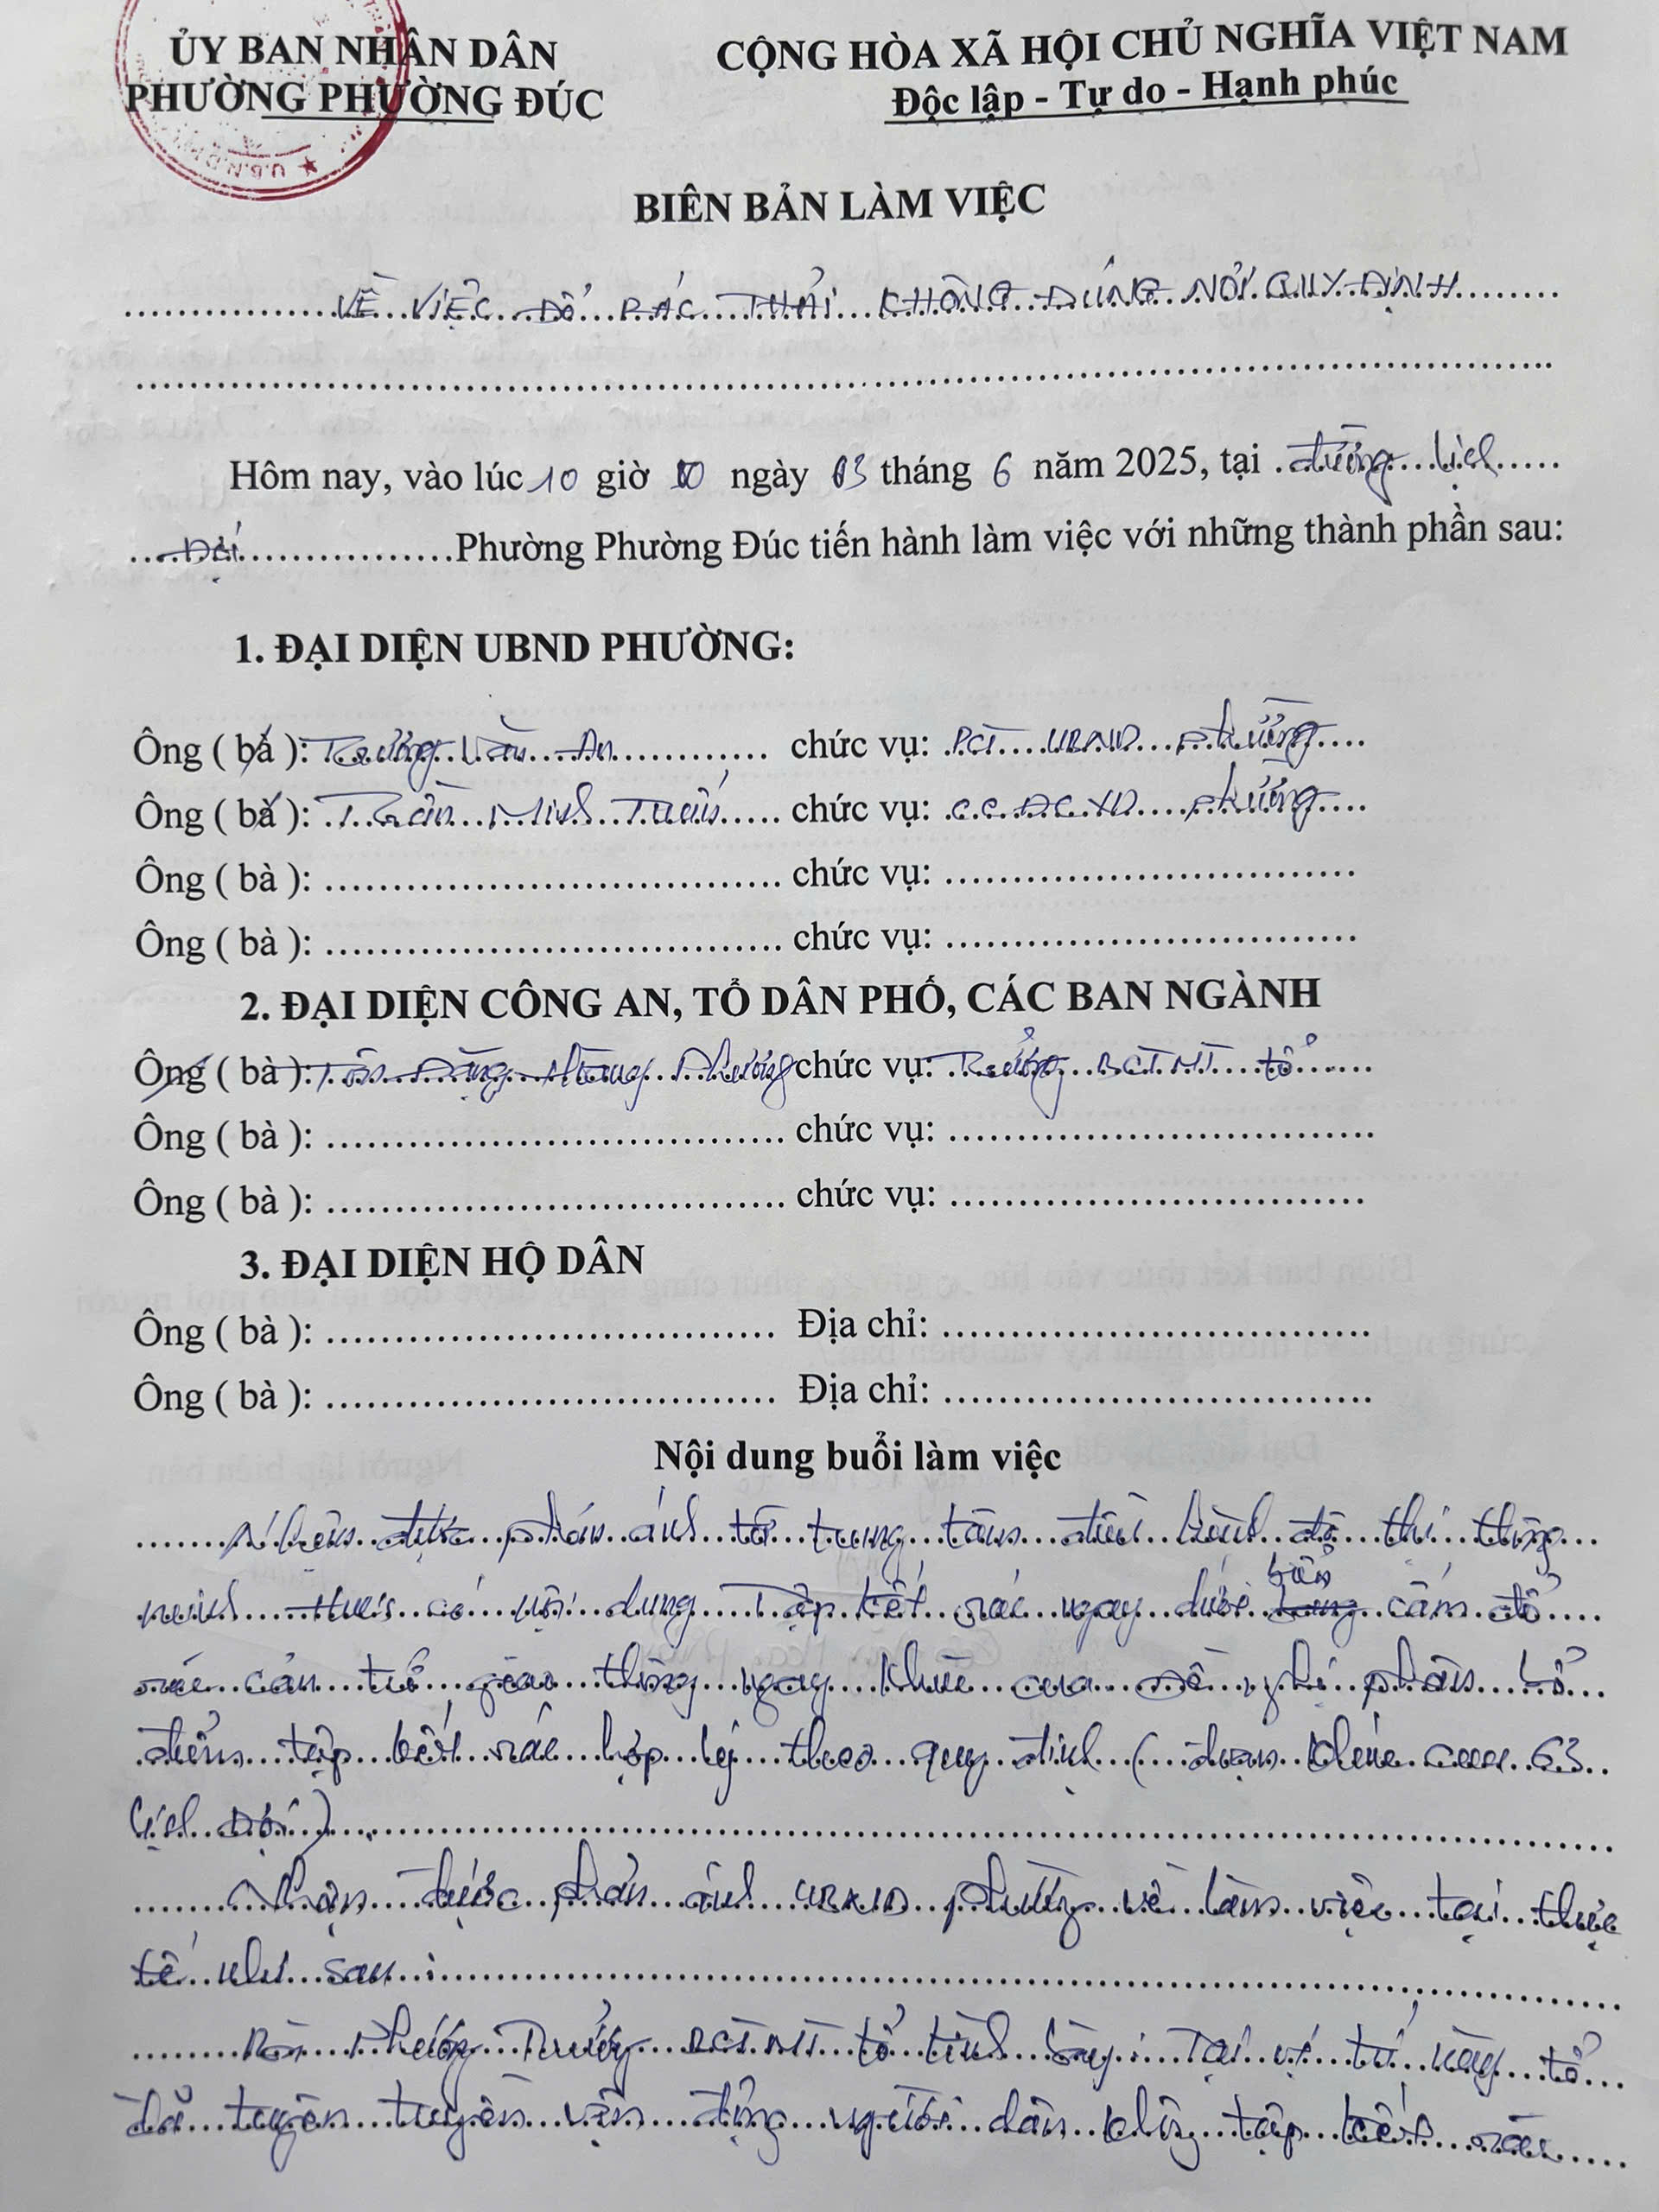 ỦY BAN NHÂN DÂN
PHƯỜNG PHƯỜNG ĐÚC
CỘNG HÒA XÃ HỘI CHỦ NGHĨA VIỆT NAM
Độc lập - Tự do - Hạnh phúc
BIÊN BẢN LÀM VIỆC
VỀ VIỆC ĐỔ RÁC THẢI KHÔNG ĐÚNG NƠI QUY ĐỊNH
Hôm nay, vào lúc 10 giờ 00 ngày 03 tháng 6 năm 2025, tại đường Lịch
Đợi Phường Phường Đúc tiến hành làm việc với những thành phần sau:
1. ĐẠI DIỆN UBND PHƯỜNG:
Ông ( bà ): Trương Văn An chức vụ: PCT UBND phường
Ông ( bà ): Trần Minh Tuấn chức vụ: C.C ĐC XD phường
Ông ( bà ): chức vụ:
Ông ( bà ): chức vụ:
2. ĐẠI DIỆN CÔNG AN, TỔ DÂN PHỐ, CÁC BAN NGÀNH
Ông ( bà ): Đặng Phương chức vụ: Trưởng BCTMT tổ
Ông ( bà ): chức vụ:
Ông ( bà ): chức vụ:
3. ĐẠI DIỆN HỘ DÂN
Ông ( bà ): Địa chỉ:
Ông ( bà ): Địa chỉ:
Nội dung buổi làm việc
Nhận được phản ánh từ trung tâm điều hành đô thị thông
minh Huế có nội dung Tập kết rác ngay dưới biển cấm đổ
rác cản trở giao thông ngay khúc cua Đề nghị phân bổ
điểm tập kết rác hợp lý theo quy định ( đoạn khúc cua 63
Lịch Đợi ).
Nhận được phản ánh UBND phường về làm việc tại thực
tế như sau :
Bà Phương Trưởng BCTMT tổ trình bày : Tại vị trí này tổ
đã tuyên truyền vận động người dân không tập kết rác